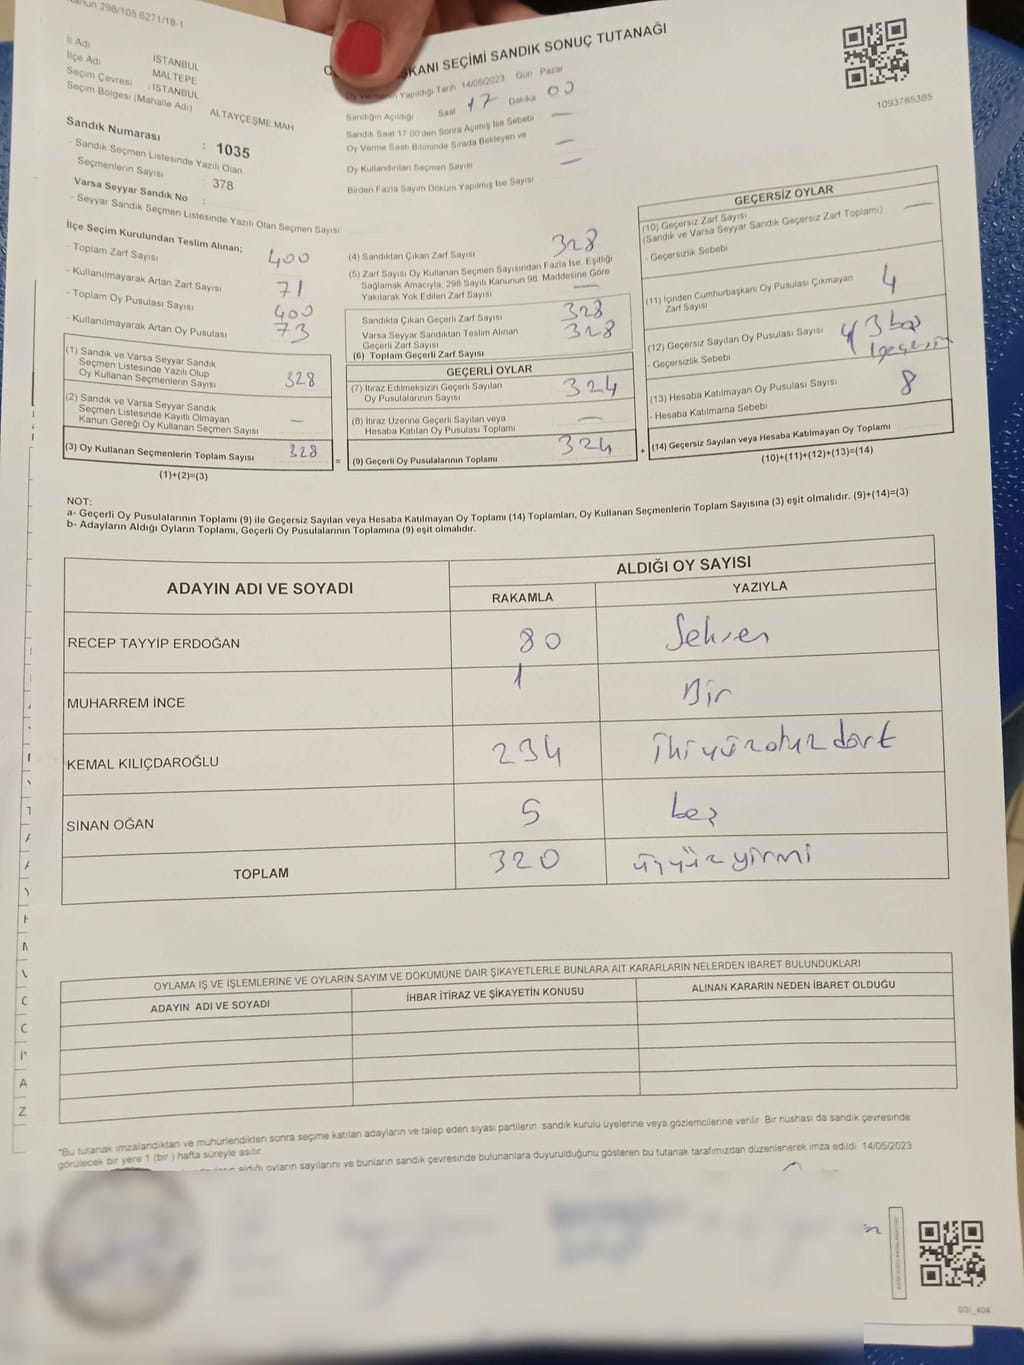 298/105.6271/18-1
İl Adı
İSTANBUL
İlçe Adı
MALTEPE
Seçim Çevresi : İSTANBUL
Seçim Bölgesi (Mahalle Adı) ALTAYÇEŞME MAH
KANI SEÇİMİ SANDIK SONUÇ TUTANAĞI
Oy Vermenin Yapıldığı Tarih 14/05/2023 Gün Pazar
Sandığın Açıldığı Saat 17 Dakika 00
Sandık Saat 17.00'den Sonra Açılmış İse Sebebi —
Oy Verme Saati Bitiminde Sırada Bekleyen ve
Oy Kullandırılan Seçmen Sayısı —
Birden Fazla Sayım Döküm Yapılmış İse Sayısı —
1093785385
Sandık Numarası : 1035
- Sandık Seçmen Listesinde Yazılı Olan
Seçmenlerin Sayısı : 378
Varsa Seyyar Sandık No :
- Seyyar Sandık Seçmen Listesinde Yazılı Olan Seçmen Sayısı
İlçe Seçim Kurulundan Teslim Alınan;
- Toplam Zarf Sayısı 400
- Kullanılmayarak Artan Zarf Sayısı 71
- Toplam Oy Pusulası Sayısı 400
- Kullanılmayarak Artan Oy Pusulası 73
(1) Sandık ve Varsa Seyyar Sandık
Seçmen Listesinde Yazılı Olup
Oy Kullanan Seçmenlerin Sayısı 328
(2) Sandık ve Varsa Seyyar Sandık
Seçmen Listesinde Kayıtlı Olmayan
Kanun Gereği Oy Kullanan Seçmen Sayısı —
(3) Oy Kullanan Seçmenlerin Toplam Sayısı 328
(1)+(2)=(3)
(4) Sandıktan Çıkan Zarf Sayısı 328
(5) Zarf Sayısı Oy Kullanan Seçmen Sayısından Fazla İse, Eşitliği
Sağlamak Amacıyla, 298 Sayılı Kanunun 98. Maddesine Göre
Yakılarak Yok Edilen Zarf Sayısı —
Sandıkta Çıkan Geçerli Zarf Sayısı 328
Varsa Seyyar Sandıktan Teslim Alınan
Geçerli Zarf Sayısı 328
(6) Toplam Geçerli Zarf Sayısı
GEÇERLİ OYLAR
(7) İtiraz Edilmeksizin Geçerli Sayılan
Oy Pusulalarının Sayısı 324
(8) İtiraz Üzerine Geçerli Sayılan veya
Hesaba Katılan Oy Pusulası Toplamı —
(9) Geçerli Oy Pusulalarının Toplamı 324
=
+
GEÇERSİZ OYLAR
(10) Geçersiz Zarf Sayısı
(Sandık ve Varsa Seyyar Sandık Geçersiz Zarf Toplamı) —
- Geçersizlik Sebebi
(11) İçinden Cumhurbaşkanı Oy Pusulası Çıkmayan
Zarf Sayısı 4
(12) Geçersiz Sayılan Oy Pusulası Sayısı 4
- Geçersizlik Sebebi
(13) Hesaba Katılmayan Oy Pusulası Sayısı 8
- Hesaba Katılmama Sebebi
(14) Geçersiz Sayılan veya Hesaba Katılmayan Oy Toplamı
(10)+(11)+(12)+(13)=(14)
NOT:
a- Geçerli Oy Pusulalarının Toplamı (9) ile Geçersiz Sayılan veya Hesaba Katılmayan Oy Toplamı (14) Toplamları, Oy Kullanan Seçmenlerin Toplam Sayısına (3) eşit olmalıdır. (9)+(14)=(3)
b- Adayların Aldığı Oyların Toplamı, Geçerli Oy Pusulalarının Toplamına (9) eşit olmalıdır.
ADAYIN ADI VE SOYADI
ALDIĞI OY SAYISI
RAKAMLA
YAZIYLA
RECEP TAYYİP ERDOĞAN 80 Seksen
MUHARREM İNCE 1 Bir
KEMAL KILIÇDAROĞLU 234 ikiyüzotuzdört
SİNAN OĞAN 5 beş
TOPLAM 320 üçyüzyirmi
OYLAMA İŞ VE İŞLEMLERİNE VE OYLARIN SAYIM VE DÖKÜMÜNE DAİR ŞİKAYETLERLE BUNLARA AİT KARARLARIN NELERDEN İBARET BULUNDUKLARI
ADAYIN ADI VE SOYADI
İHBAR İTİRAZ VE ŞİKAYETİN KONUSU
ALINAN KARARIN NEDEN İBARET OLDUĞU
*Bu tutanak imzalandıktan ve mühürlendikten sonra seçime katılan adayların ve talep eden siyasi partilerin sandık kurulu üyelerine veya gözlemcilerine verilir. Bir nüshası da sandık çevresinde
görülecek bir yere 1 (bir ) hafta süreyle asılır.
aldığı oyların sayılarını ve bunların sandık çevresinde bulunanlara duyurulduğunu gösteren bu tutanak tarafımızdan düzenlenerek imza edildi. 14/05/2023